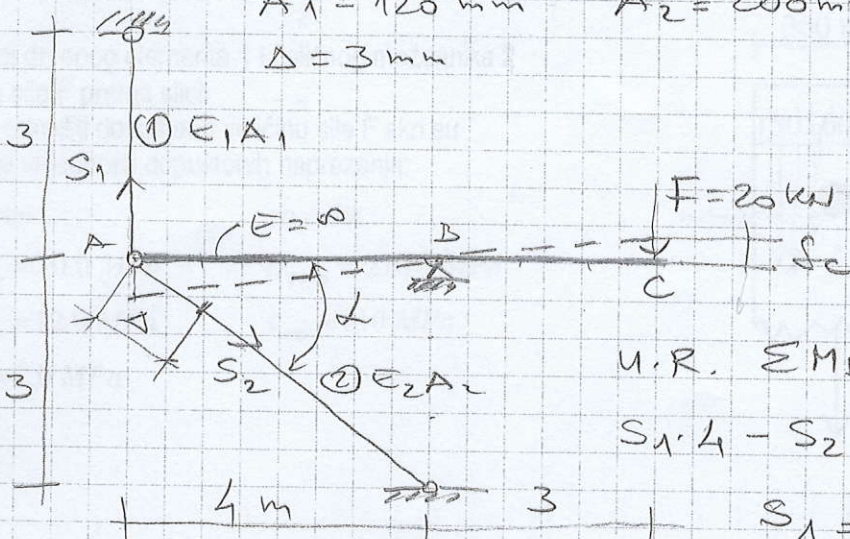 A1 = 120 mm A2 = 200 m
Δ = 3 mm
3
① E1A1
S1
A
E = ∞
B
F = 20 kN
C
Δ
α
S2
② E2A2
3
U.R. ΣM
S1·4 - S2
4 m
3
S1 =